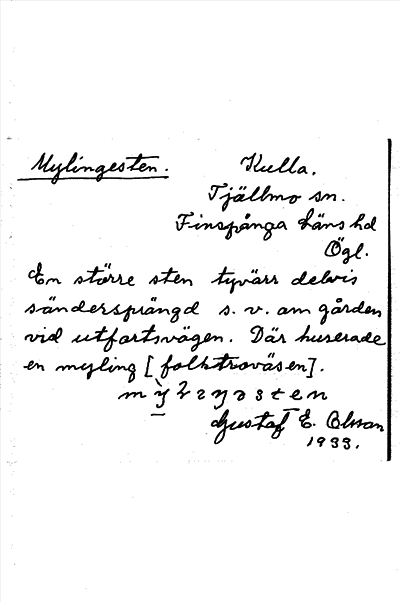 Mylingesten. Kulla.
Tjällmo sn.
Finspånga läns hd
Ögl.
En större sten tyvärr delvis
söndersprängd s. v. om gården
vid utfartsvägen. Där huserade
en myling [folktroväsen].
Gustaf E. Olsson
1933.